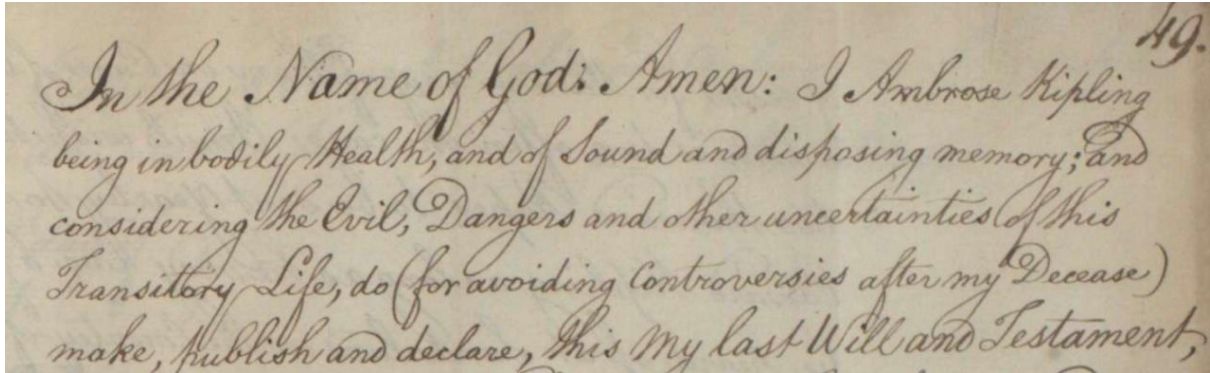 49.
In the Name of God: Amen: I Ambrose Kipling
being in bodily Health, and of Sound and disposing memory; and
considering the Evil, Dangers and other uncertainties of this
Transitory Life, do (for avoiding Controversies after my Decease)
make, publish and declare, this my last Will and Testament,